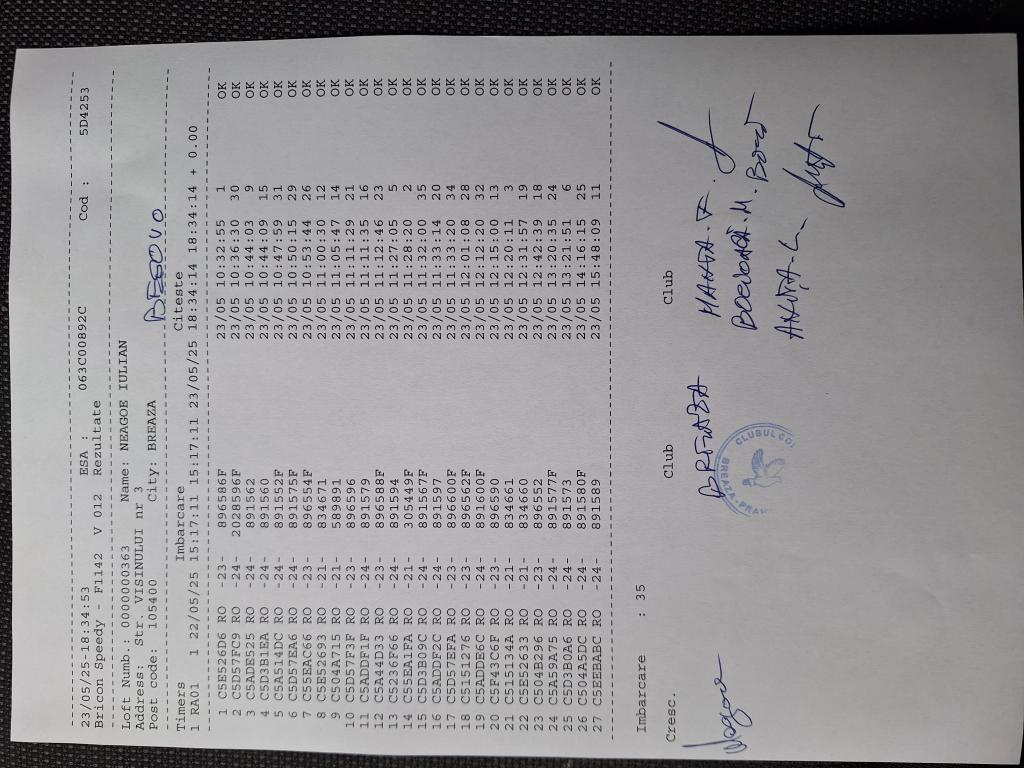 23/05/25-18:34:53 ESA : 063C00892C Cod : 5D4253
Bricon Speedy - F1142 V 012 Rezultate
Loft Numb.: 0000000363 Name: NEAGOE IULIAN
Address: Str. VISINULUI nr 3
Post code: 105400 City: BREAZA
Timers Imbarcare Citeste
1 RA01 1 22/05/25 15:17:11 15:17:11 15:17:11 23/05/25 18:34:14 18:34:14 18:34:14 + 0.00
1 C5E526D6 RO -23- 896586F 23/05 10:32:55 1 OK
2 C5D57FC9 RO -24- 2028596F 23/05 10:36:30 30 OK
3 C5ADE525 RO -24- 891562 23/05 10:44:03 9 OK
4 C5D3B1EA RO -24- 891560 23/05 10:44:09 15 OK
5 C5A514DC RO -24- 891552F 23/05 10:47:59 31 OK
6 C5D57EA6 RO -24- 891575F 23/05 10:50:15 29 OK
7 C55EAC66 RO -23- 896554F 23/05 10:53:44 26 OK
8 C5E52693 RO -21- 834671 23/05 11:00:30 12 OK
9 C504A715 RO -21- 589891 23/05 11:05:47 14 OK
10 C5D57F3F RO -23- 896596 23/05 11:11:29 21 OK
11 C5ADDF1F RO -24- 891579 23/05 11:11:35 16 OK
12 C5A44D33 RO -23- 896588F 23/05 11:12:46 23 OK
13 C5236F66 RO -24- 891594 23/05 11:27:05 5 OK
14 C55EA1FA RO -21- 305449F 23/05 11:28:20 2 OK
15 C5D3B09C RO -24- 891567F 23/05 11:32:00 35 OK
16 C5ADDF2C RO -24- 891597 23/05 11:33:14 20 OK
17 C5D57EFA RO -23- 896600F 23/05 11:33:20 34 OK
18 C5151276 RO -23- 896562F 23/05 12:01:08 28 OK
19 C5ADDE6C RO -24- 891600F 23/05 12:12:20 32 OK
20 C5F43C6F RO -23- 896590 23/05 12:15:00 13 OK
21 C515134A RO -21- 834661 23/05 12:20:11 3 OK
22 C5E52633 RO -21- 834660 23/05 12:31:57 19 OK
23 C504B296 RO -23- 896552 23/05 12:42:39 18 OK
24 C5A59A75 RO -24- 891577F 23/05 13:20:35 24 OK
25 C5D3B0A6 RO -24- 891573 23/05 13:21:51 6 OK
26 C504A5DC RO -24- 891580F 23/05 14:16:15 25 OK
27 C5EEEABC RO -24- 891589 23/05 15:48:09 11 OK
Imbarcare : 35
Cresc. Club Club
BREAZA
CLUBUL CO
BREAZA-PRAH